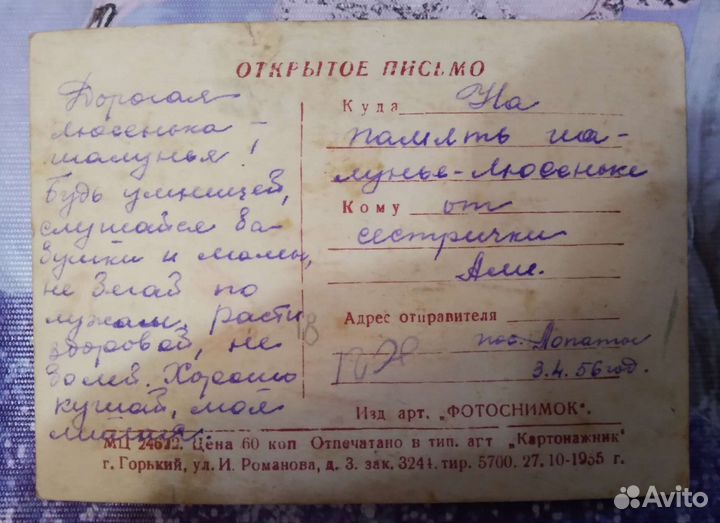 ОТКРЫТОЕ ПИСЬМО
Дорогая
Люсенька
шалунья!
Будь умницей,
слушайся ба
бушки и мамы,
не бегай по
лужам, расти
здоровой, не
болей. Хорошо
кушай, моя
Куда На
память ша-
лунье-Люсеньке
Кому от
сестрички
Али.
Адрес отправителя
пос. Лопаты
3.4.56 год.
Изд арт. „ФОТОСНИМОК".
МЦ 24612. Цена 60 коп Отпечатано в тип. агт „Картонажник"
г. Горький, ул. И. Романова, д. 3. зак. 3244. тир. 5700. 27. 10-1955 г.
Avito